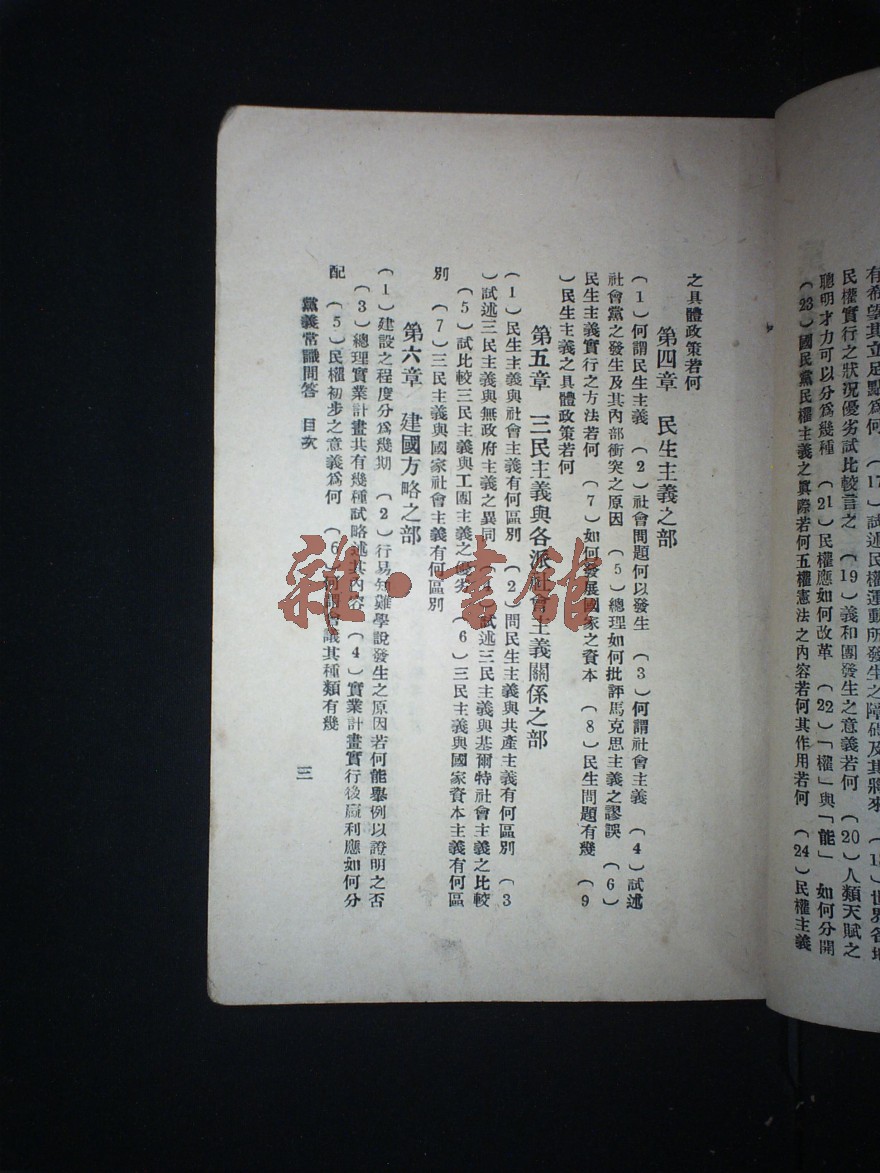 有希望其立足點爲何 (17)試述民權運動所發生之障碍及其將來
民權實行之狀况優劣試比較言之 (19)義和團發生之意義若何 (20)人類天賦之
聰明才力可以分爲幾種 (21)民權應如何改革 (22)「權」與「能」如何分開
(23)國民黨民權主義之眞際若何五權憲法之內容若何其作用若何 (24)民權主義
之具體政策若何
第四章 民生主義之部
(1)何謂民生主義 (2)社會問題何以發生 (3)何謂社會主義 (4)試述
社會黨之發生及其內部衝突之原因 (5)總理如何批評馬克思主義之謬誤 (6)
民生主義實行之方法若何 (7)如何發展國家之資本 (8)民生問題有幾 (9
)民生主義之具體政策若何
第五章 三民主義與各派社會主義關係之部
(1)民生主義與社會主義有何區別 (2)問民生主義與共產主義有何區別 (3
)試述三民主義與無政府主義之異同 (4)試述三民主義與基爾特社會主義之比較
(5)試比較三民主義與工團主義之優劣 (6)三民主義與國家資本主義有何區
別 (7)三民主義與國家社會主義有何區別
第六章 建國方略之部
(1)建設之程度分爲幾期 (2)行易知難學說發生之原因若何能舉例以證明之否
(3)總理實業計畫共有幾種試略述其內容 (4)實業計畫實行後贏利應如何分
配 (5)民權初步之意義爲何 (6)何謂會議其種類有幾
黨義常識問答 目次
三
雜·書館